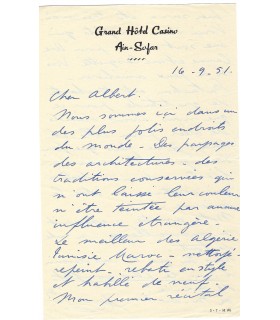 Grand Hôtel Casino
Ain-Sofar
16-9-51.
Cher Albert.
Nous sommes ici dans un
des plus jolis endroits
du monde - Des paysages
des architectures - des
traditions conservées qui
n'ont laissé leur couleur
n'être teintée par aucune
influence étrangère.
Le meilleur des Algérie
Tunisie Maroc - nettoyé-
repeint - rebâti en style
et habillé de neuf.
Mon premier récital